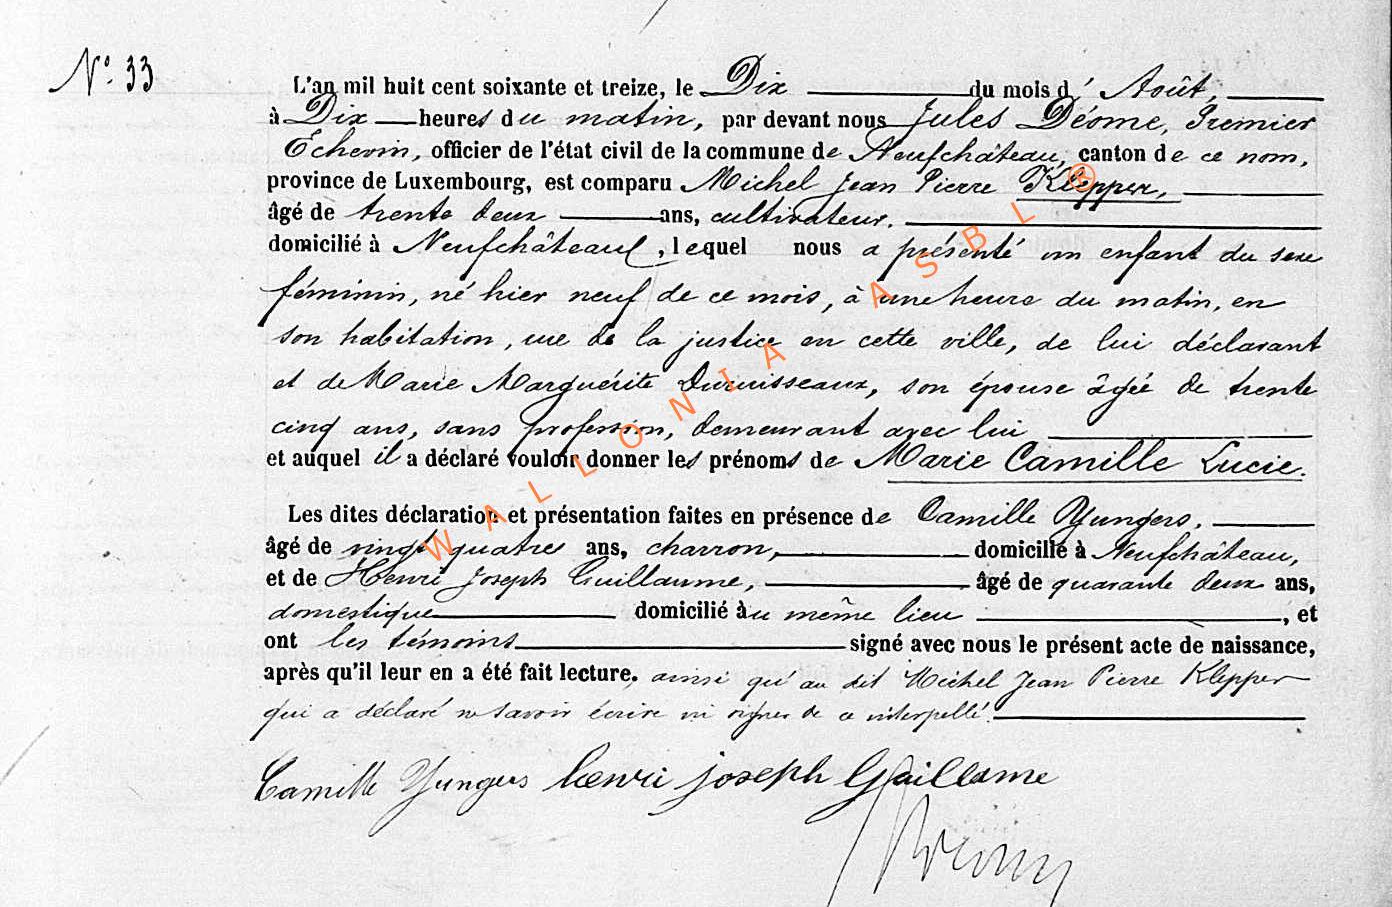 N° 33
L'an mil huit cent soixante et treize, le Dix du mois d' Août,
à Dix heures du matin, par devant nous Jules Déome, Premier
Echevin, officier de l'état civil de la commune de Neufchâteau, canton de ce nom,
province de Luxembourg, est comparu Michel Jean Pierre Klepper,
âgé de trente deux ans, cultivateur,
domicilié à Neufchâteau, lequel nous a présenté un enfant du sexe
féminin, né hier neuf de ce mois, à une heure du matin, en
son habitation, rue de la justice en cette ville, de lui déclarant
et de Marie Marguérite Duruisseaux, son épouse âgée de trente
cinq ans, sans profession, demeurant avec lui
et auquel il a déclaré vouloir donner les prénoms de Marie Camille Lucie.
Les dites déclaration et présentation faites en présence de Camille Yungers,
âgé de vingt quatre ans, charron, domicilié à Neufchâteau,
et de Henri Joseph Guillaume, âgé de quarante deux ans,
domestique domicilié au même lieu, et
ont les témoins signé avec nous le présent acte de naissance,
après qu'il leur en a été fait lecture. ainsi qu'au dit Michel Jean Pierre Klepper
qui a déclaré ne savoir écrire ni signer de ce interpellé.
Camille Yungers henri joseph Guillame
WALLONIA ASBL ®